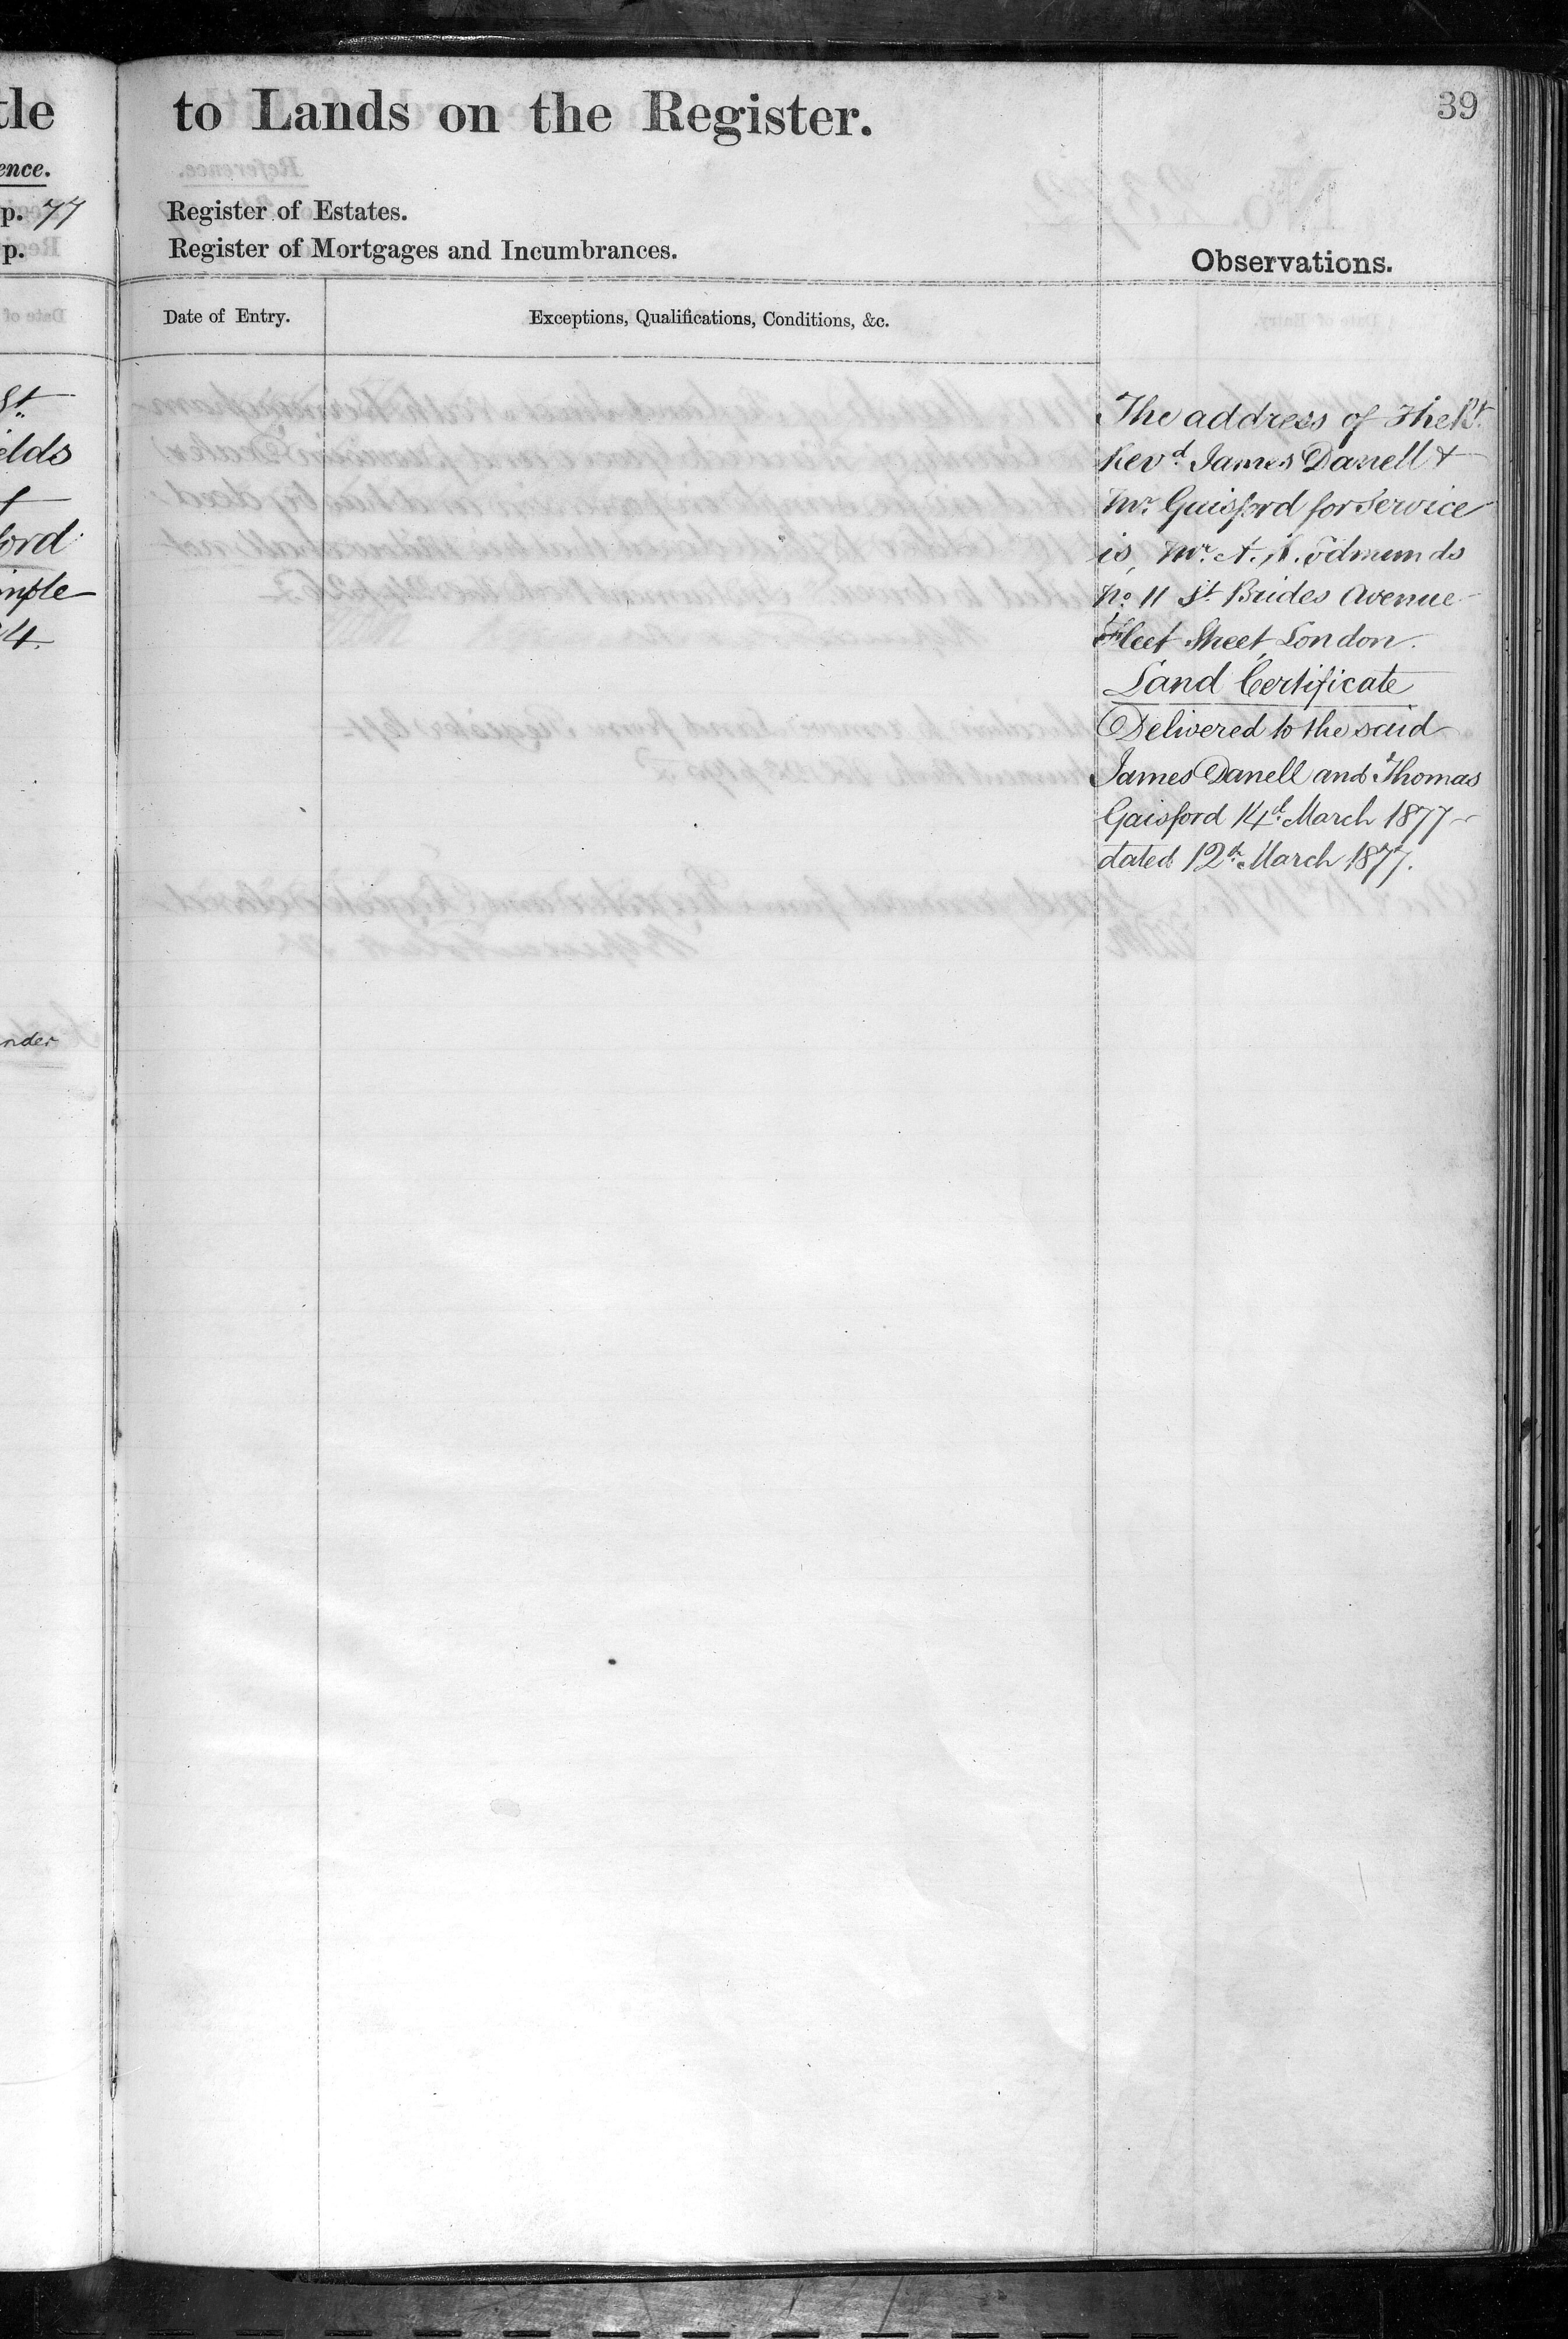 tle
ence.
p. 77
p.
St
elds
ford
imple
4.
nder
to Lands on the Register.
39
Register of Estates.
Register of Mortgages and Incumbrances.
Observations.
Date of Entry.
Exceptions, Qualifications, Conditions, &c.
The address of the Rt.
Revd. James Danell &
Mr. Gaisford for Service
is, Mr. A. Edmunds
No. 11 St. Brides Avenue
Fleet Street, London.
Land Certificate
Delivered to the said
James Danell and Thomas
Gaisford 14th. March 1877
dated 12th. March 1877.